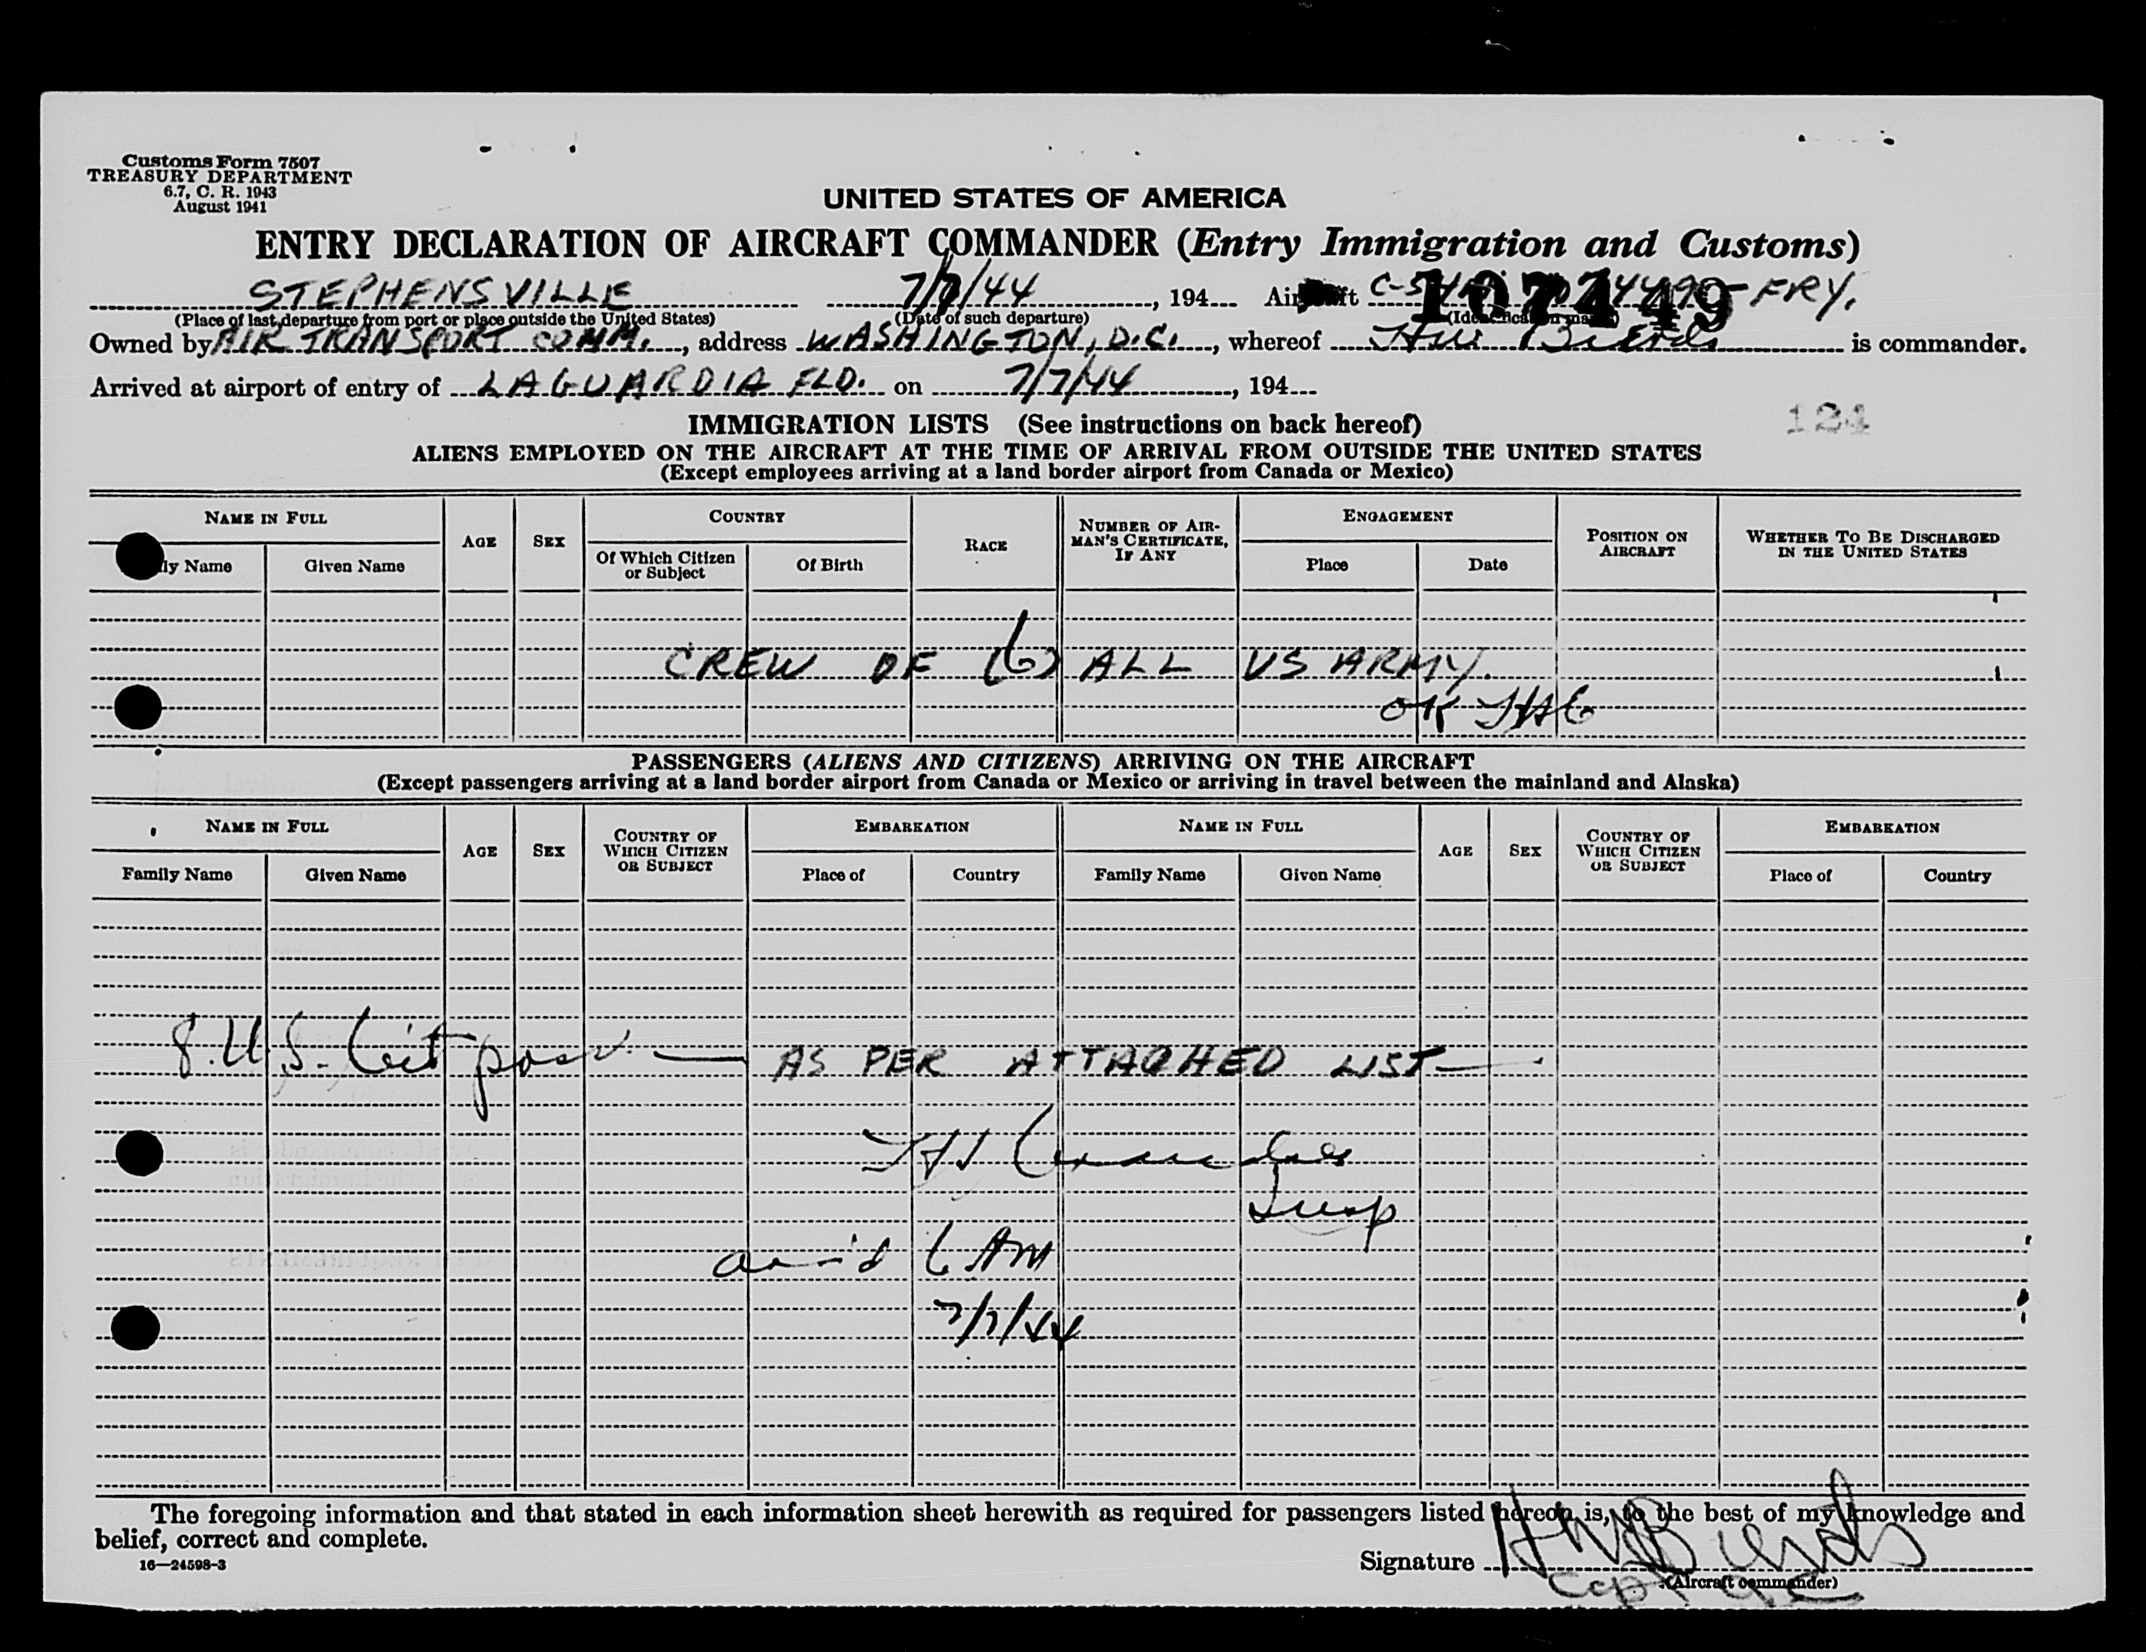 Customs Form 7507
TREASURY DEPARTMENT
6.7, C. R. 1943
August 1941
UNITED STATES OF AMERICA
ENTRY DECLARATION OF AIRCRAFT COMMANDER (Entry Immigration and Customs)
STEPHENSVILLE 7/7/44, 194 Aircraft 107449 FRY.
(Place of last departure from port or place outside the United States) (Date of such departure) (Identification marks)
Owned by AIR TRANSPORT COMM., address WASHINGTON, D.C., whereof is commander.
Arrived at airport of entry of LAGUARDIA FLD. on 7/7/44, 194
124
IMMIGRATION LISTS (See instructions on back hereof)
ALIENS EMPLOYED ON THE AIRCRAFT AT THE TIME OF ARRIVAL FROM OUTSIDE THE UNITED STATES
(Except employees arriving at a land border airport from Canada or Mexico)
NAME IN FULL AGE SEX COUNTRY RACE NUMBER OF AIRMAN'S CERTIFICATE, IF ANY ENGAGEMENT POSITION ON AIRCRAFT WHETHER TO BE DISCHARGED IN THE UNITED STATES
ly Name Given Name Of Which Citizen or Subject Of Birth Place Date
CREW OF (6) ALL US ARMY.
OK
PASSENGERS (ALIENS AND CITIZENS) ARRIVING ON THE AIRCRAFT
(Except passengers arriving at a land border airport from Canada or Mexico or arriving in travel between the mainland and Alaska)
NAME IN FULL AGE SEX COUNTRY OF WHICH CITIZEN OR SUBJECT EMBARKATION NAME IN FULL AGE SEX COUNTRY OF WHICH CITIZEN OR SUBJECT EMBARKATION
Family Name Given Name Place of Country Family Name Given Name Place of Country
8 U.S. Cit pass. — AS PER ATTACHED LIST —
Insp
arr'd 6 AM
7/7/44
The foregoing information and that stated in each information sheet herewith as required for passengers listed hereon is, to the best of my knowledge and
belief, correct and complete.
16—24598-3
Signature
(Aircraft commander)
Capt